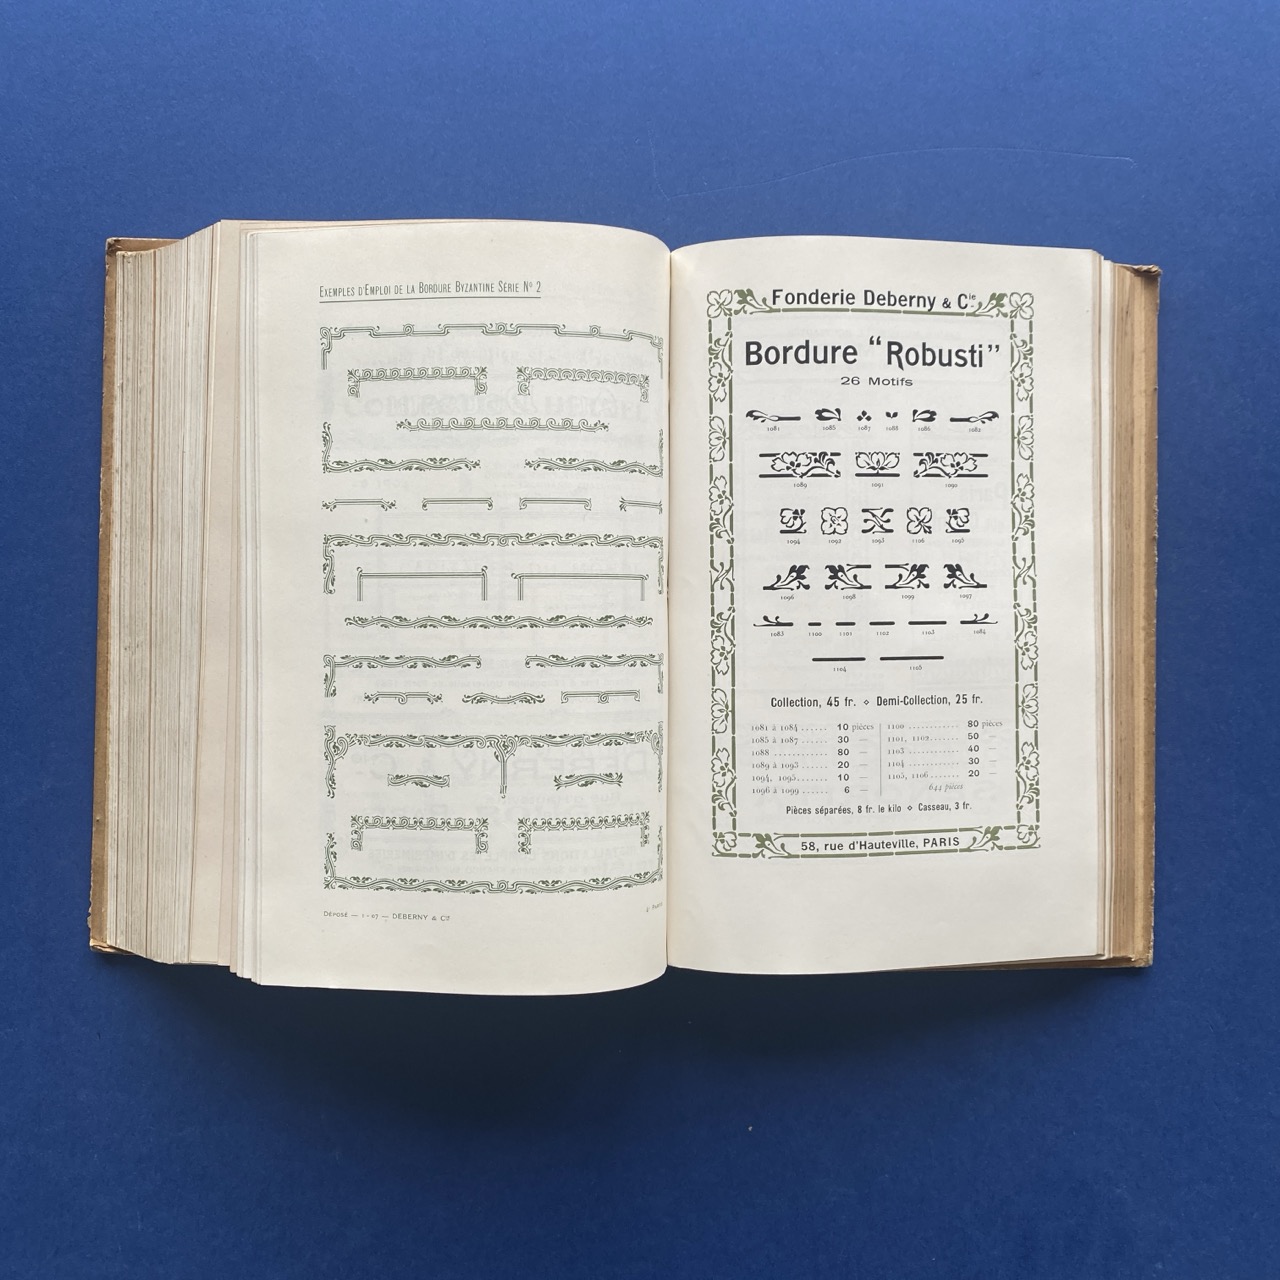 EXEMPLES D'EMPLOI DE LA BORDURE BYZANTINE SÉRIE Nº 2
DÉPOSÉ — 1 - 07 — DEBERNY & Cie
Fonderie Deberny & Cie
Bordure “Robusti”
26 Motifs
1081 1085 1087 1088 1086 1082
1089 1091 1090
1094 1092 1093 1106 1095
1096 1098 1099 1097
1083 1100 1101 1102 1103 1084
1104 1105
Collection, 45 fr. ⋄ Demi-Collection, 25 fr.
1081 à 1084 ...... 10 pièces
1085 à 1087 ...... 30 —
1088 ............... 80 —
1089 à 1093 ...... 20 —
1094, 1095 ....... 10 —
1096 à 1099 ...... 6 —
1100 ............ 80 pièces
1101, 1102 ...... 50 —
1103 ............ 40 —
1104 ............ 30 —
1105, 1106 ...... 20 —
644 pièces
Pièces séparées, 8 fr. le kilo ⋄ Casseau, 3 fr.
58, rue d'Hauteville, PARIS